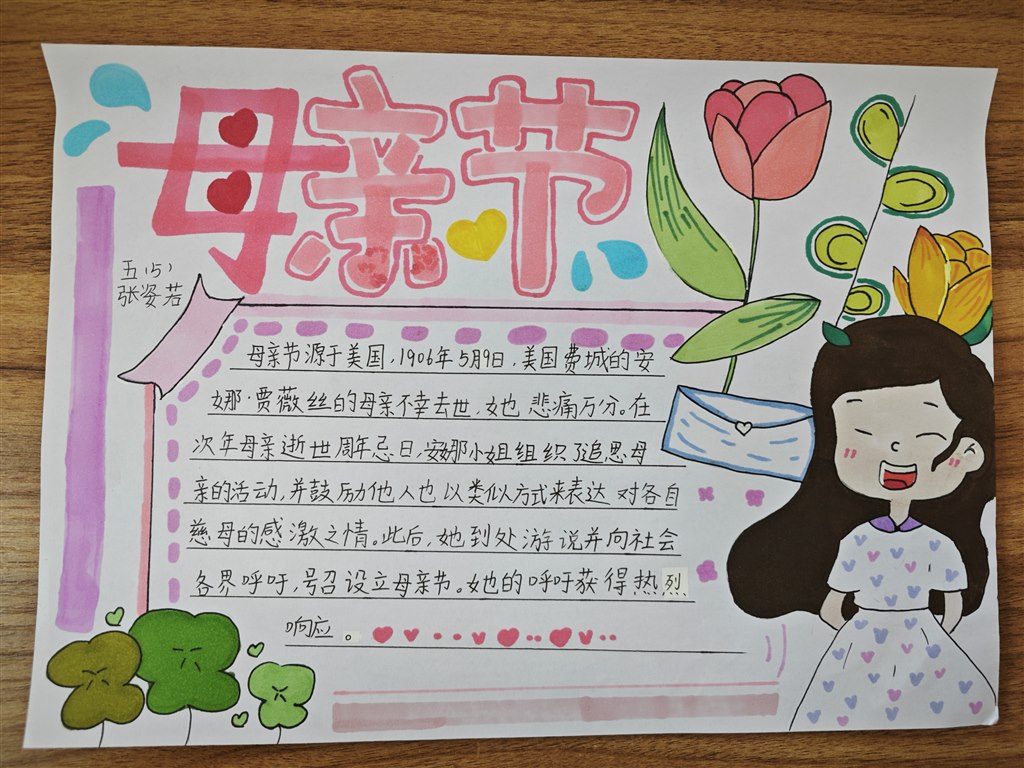 母亲节
五(5)
张姿若
母亲节源于美国,1906年5月9日,美国费城的安
娜·贾薇丝的母亲不幸去世,她悲痛万分。在
次年母亲逝世周年忌日,安娜小姐组织了追思母
亲的活动,并鼓励他人也以类似方式来表达对各自
慈母的感激之情。此后,她到处游说并向社会
各界呼吁,号召设立母亲节。她的呼吁获得热烈
响应。